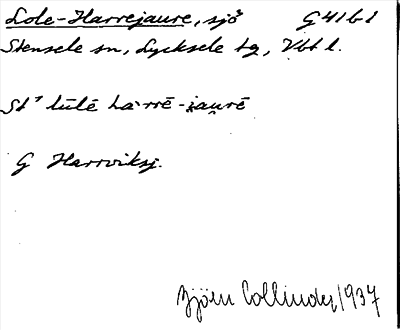 Lole-Harrejaure, sjö G 41 b 1
Stensele sn, Lycksele tg, Vbt l.
St' lūlē ha`rrē-i̯au̯rē
G Harrviksj.
Björn Collinder, 1937